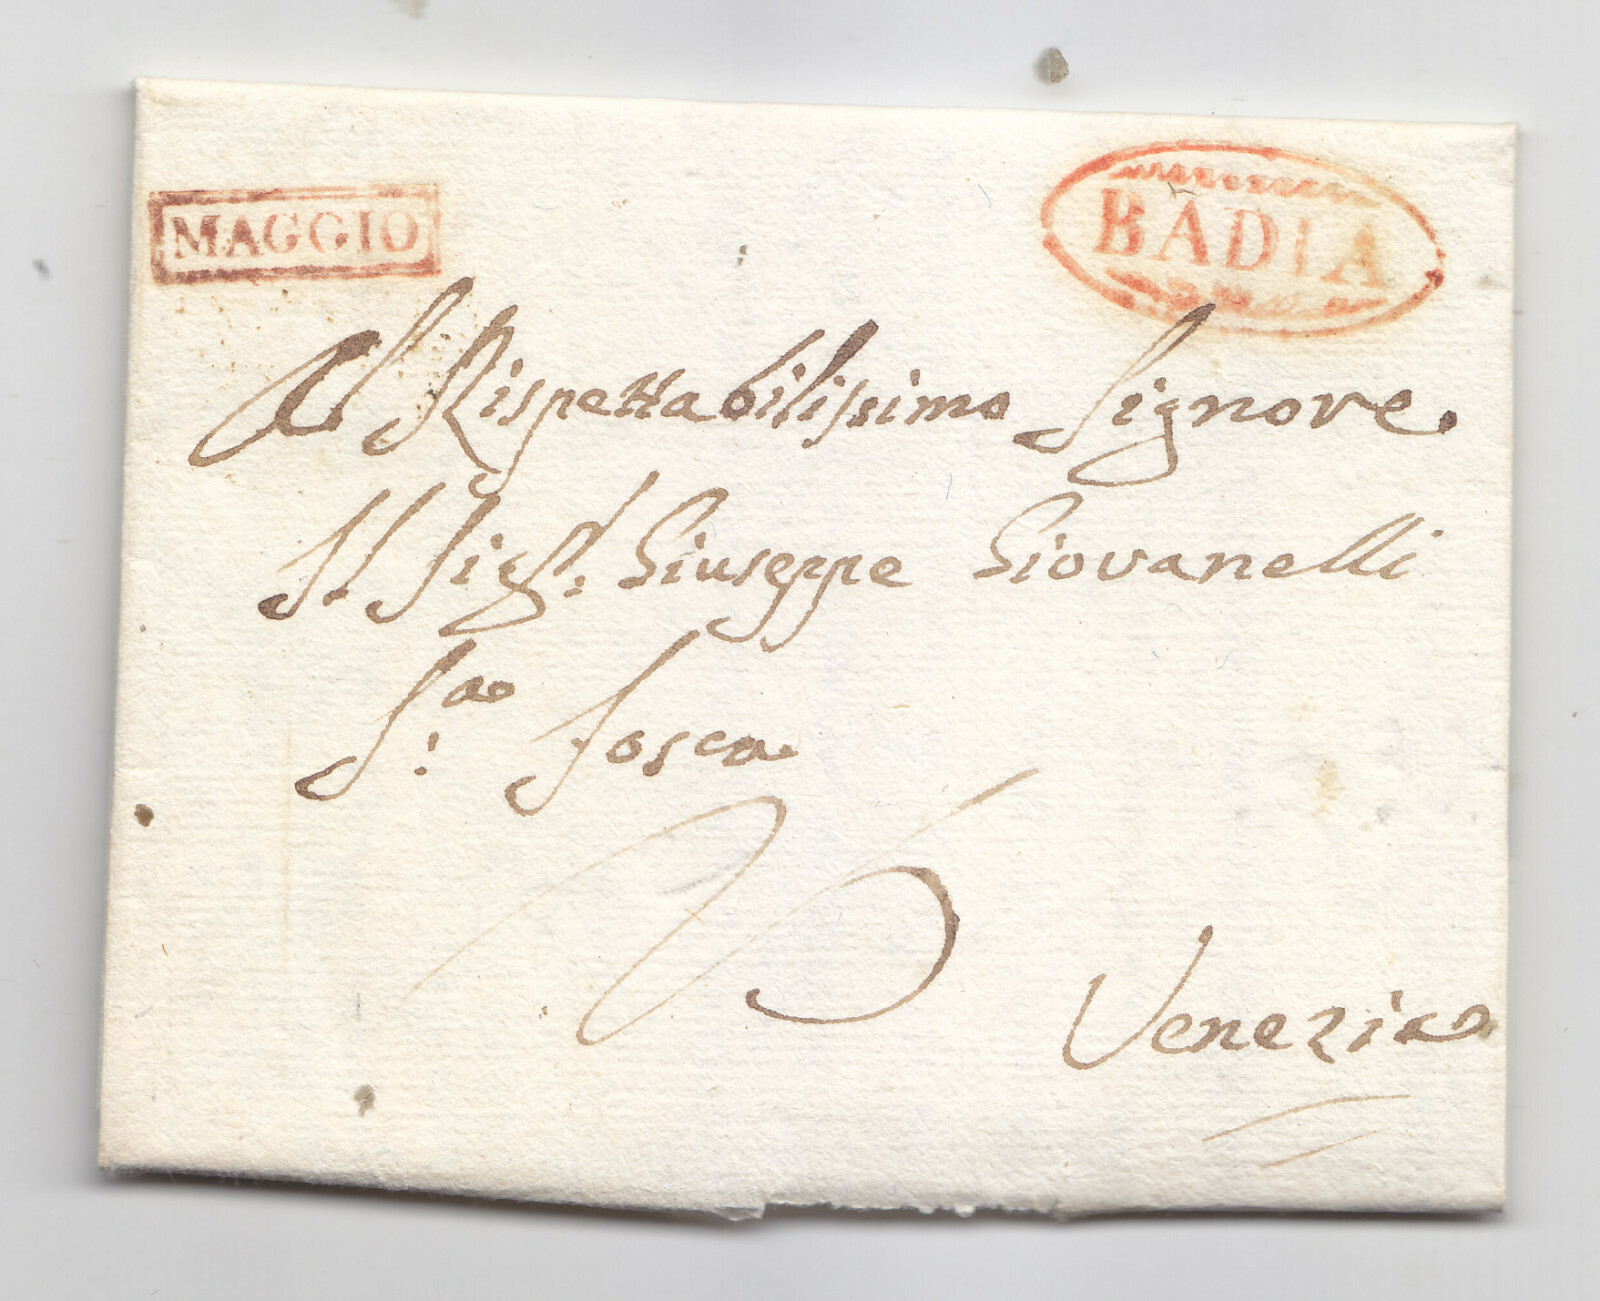 MAGGIO
BADIA
Al Rispettabilissimo Signore
Il Sigr. Giuseppe Giovanelli
S.a Fosca
Venezia